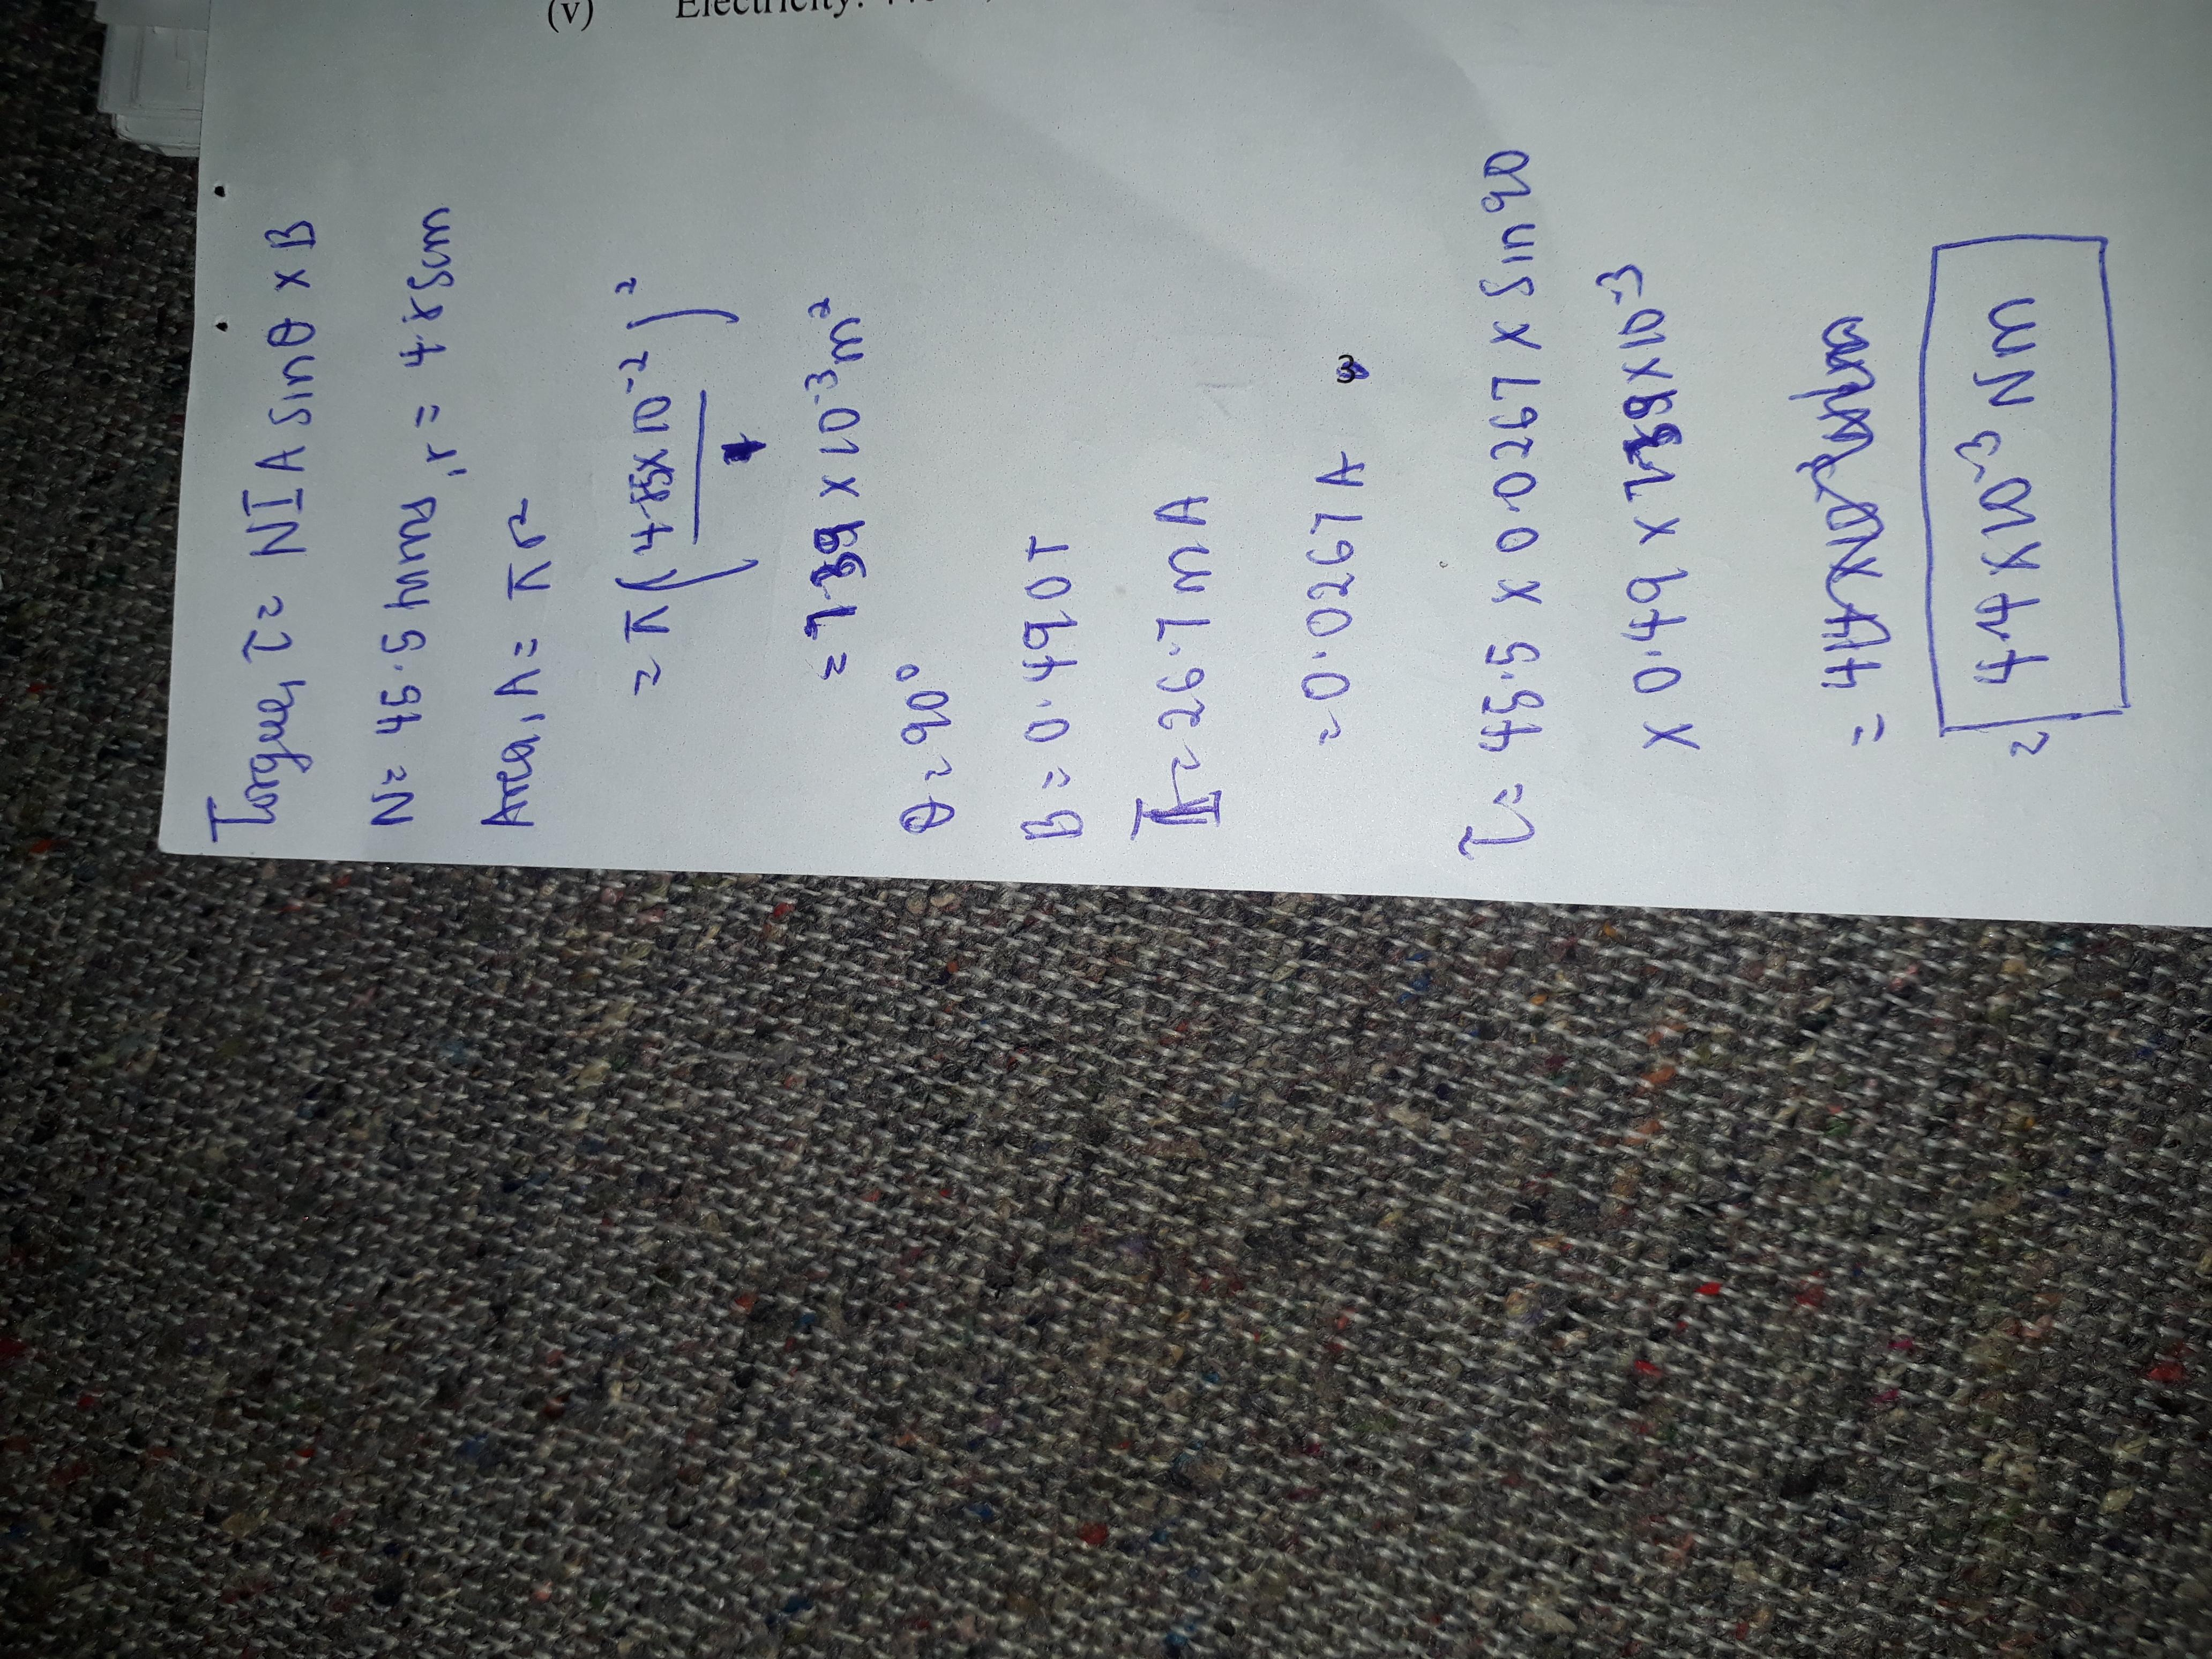 (v) Electricity:
Torque, τ = NIA sinθ × B
N = 45.5 turns, r = 4.85cm
Area, A = πr²
= π(4.85×10⁻²)²
= 7.39 × 10⁻³m²
θ = 90°
B = 0.490T
I = 26.7mA
= 0.0267A
3
τ = 45.5 × 0.0267 × sin 90
× 0.49 × 7.39×10⁻³
=
= 4.4×10⁻³ Nm